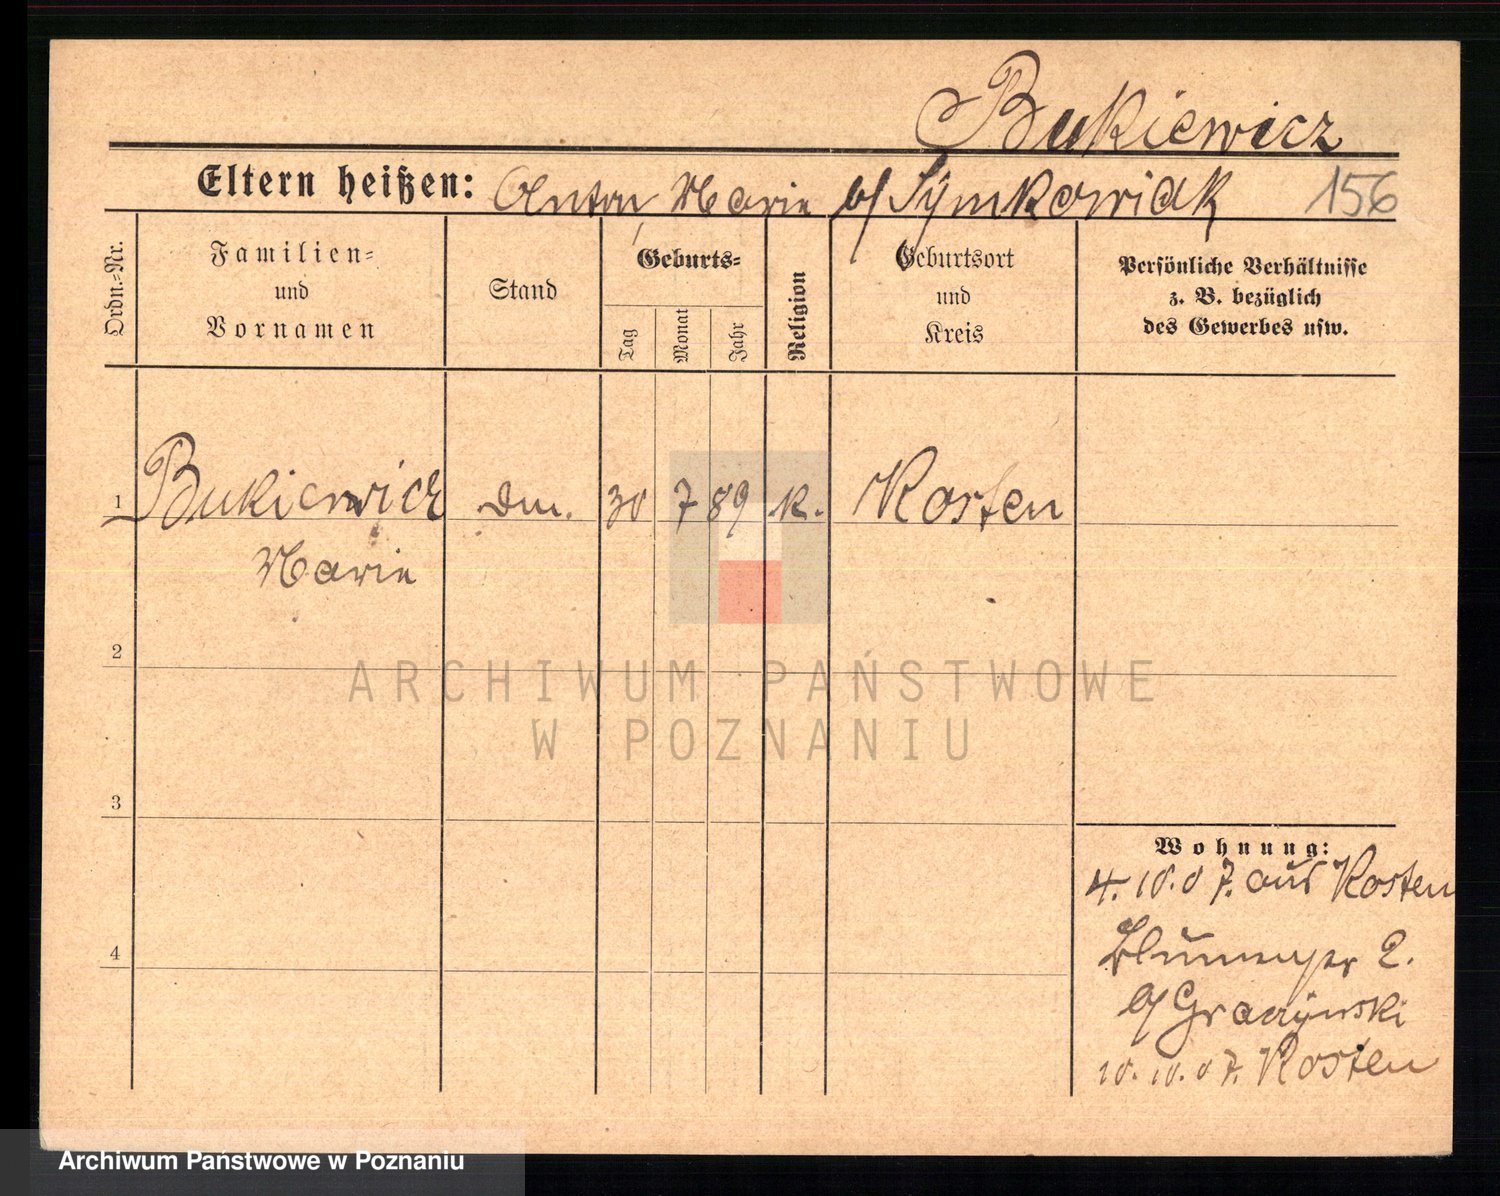 Bukiewicz
Eltern heißen: Anton Marie b/ Symkowiak 156
Ordn.-Nr.
Familien-
und
Vornamen
Stand
Geburts-
Tag
Monat
Jahr
Religion
Geburtsort
und
Kreis
Persönliche Verhältnisse
z. B. bezüglich
des Gewerbes usw.
1 Bukiewicz 30 7 89 k. Kosten
Marie
2
3
4
Wohnung:
4. 10. 07. aus Kosten
2.
b/
10. 10. 07. Kosten
ARCHIWUM PAŃSTWOWE
W POZNANIU
Archiwum Państwowe w Poznaniu